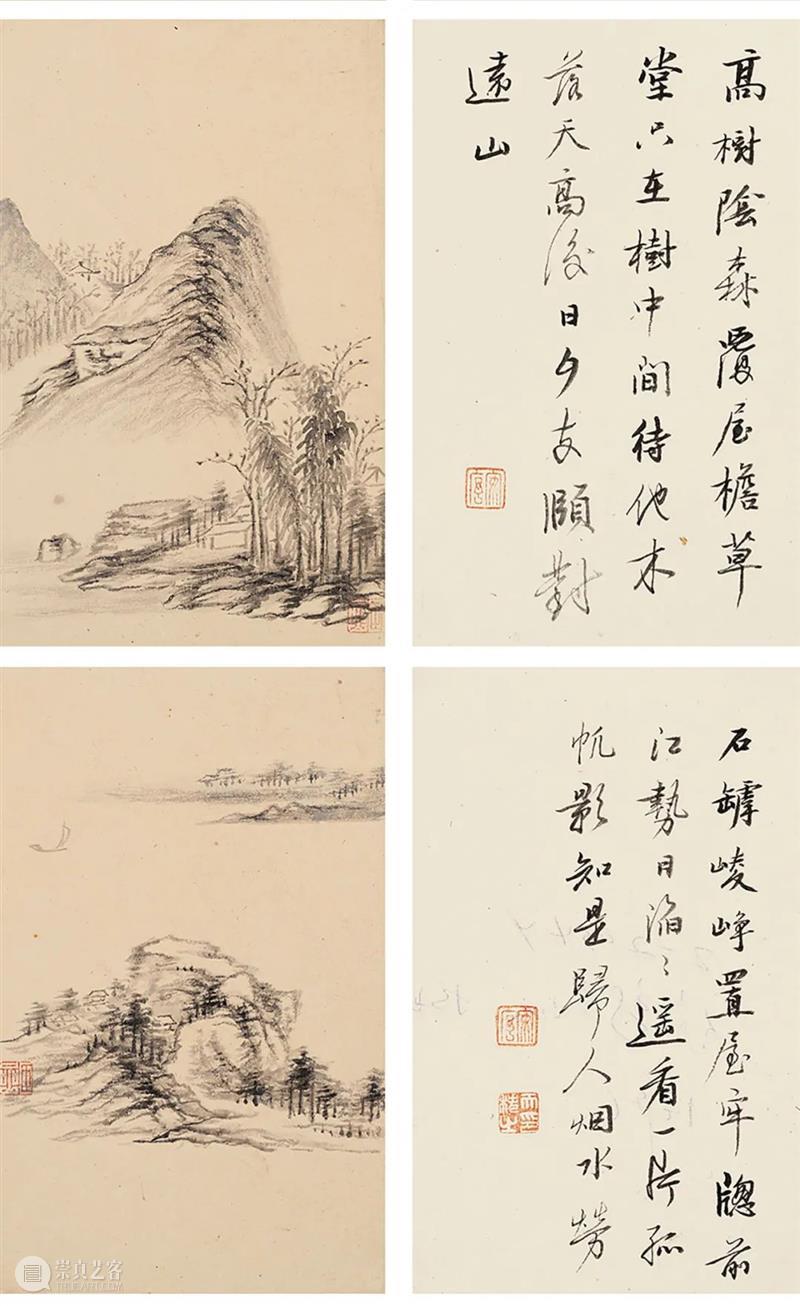 高樹陰森覆屋檐草
堂只在樹中間待他木
落天高後日夕支頤對
遠山
石罅崚崢置屋牢牕前
江勢日滔〻遥看一片孤
帆影知是歸人烟水勞
崇真艺客